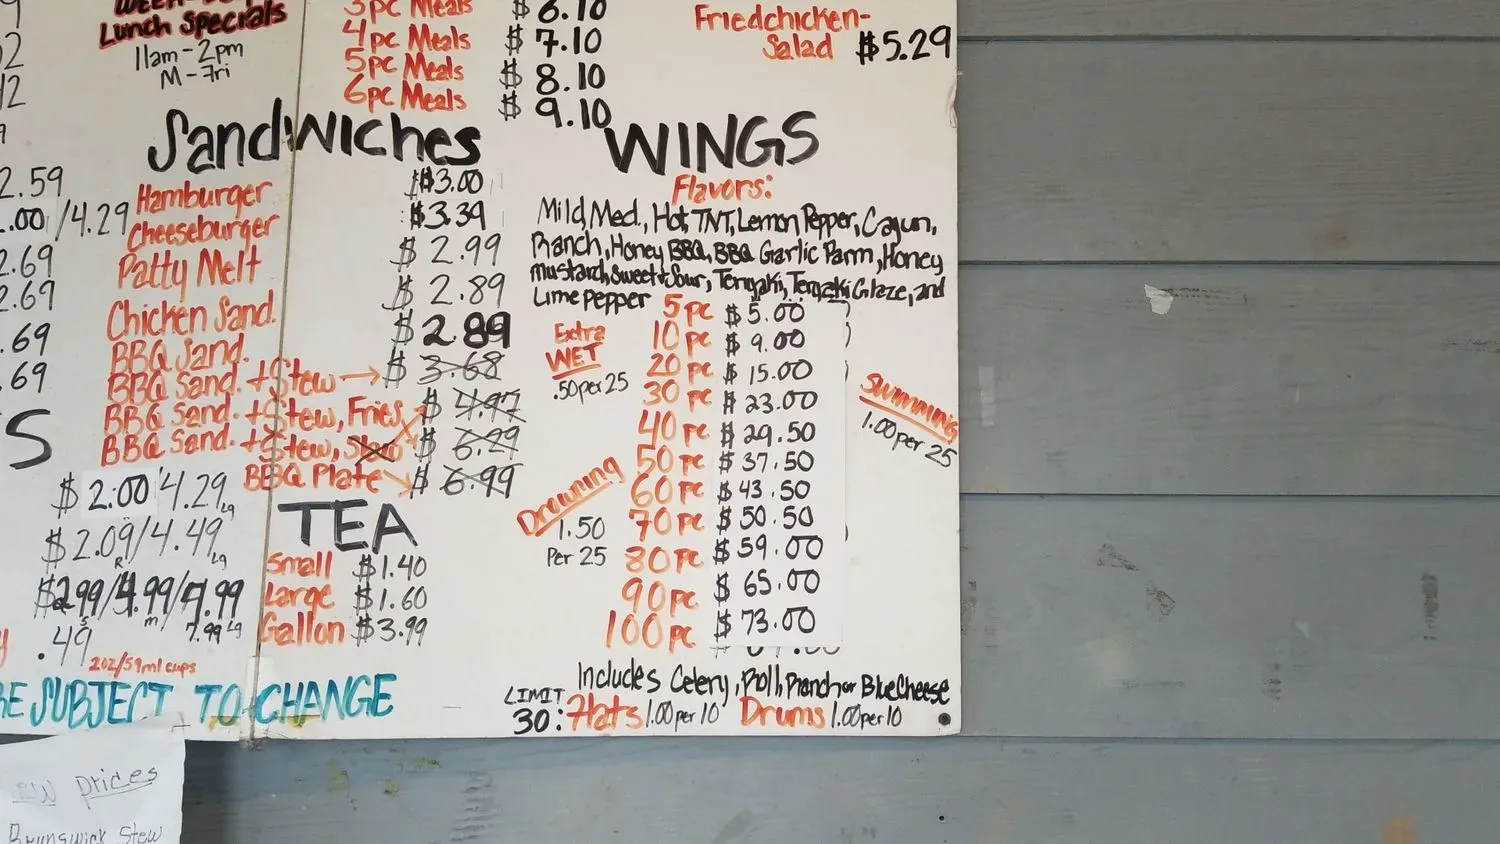 Lunch Specials
11am-2pm
M-Fri
3pc Meals $6.10
4pc Meals $7.10
5pc Meals $8.10
6pc Meals $9.10
Friedchicken-
Salad $5.29
2.59
.00/4.29
2.69
2.69
.69
.69
Sandwiches
Hamburger $3.00
Cheeseburger $3.39
Patty Melt $2.99
Chicken Sand. $2.89
BBQ Sand. $2.89
BBQ Sand. + Stew $3.68
BBQ Sand. + Stew, Fries $4.97
BBQ Sand. + Stew, Slaw $6.29
BBQ Plate $6.99
S
$2.00/4.29 Lg
$2.09/4.49 Lg
R
$2.99/4.99/7.99
S m 7.99 Lg
.49
2oz/59ml cups
TEA
Small $1.40
Large $1.60
Gallon $3.99
BE SUBJECT TO CHANGE
WINGS
Flavors:
Mild, Med., Hot, TNT, Lemon Pepper, Cajun,
Ranch, Honey BBQ, BBQ Garlic Parm, Honey
mustard, Sweet+Sour, Teriyaki, Teriyaki Glaze, and
Lime Pepper
5pc $5.00
10pc $9.00
20pc $15.00
30pc $23.00
40pc $29.50
50pc $37.50
60pc $43.50
70pc $50.50
80pc $59.00
90pc $65.00
100pc $73.00
Extra
WET
.50per25
Drowning
1.50
Per 25
Swimming
1.00per 25
Includes Celery, Roll, Ranch or BlueCheese
LIMIT
30: Flats 1.00per10 Drums 1.00per10
Prices
Brunswick Stew